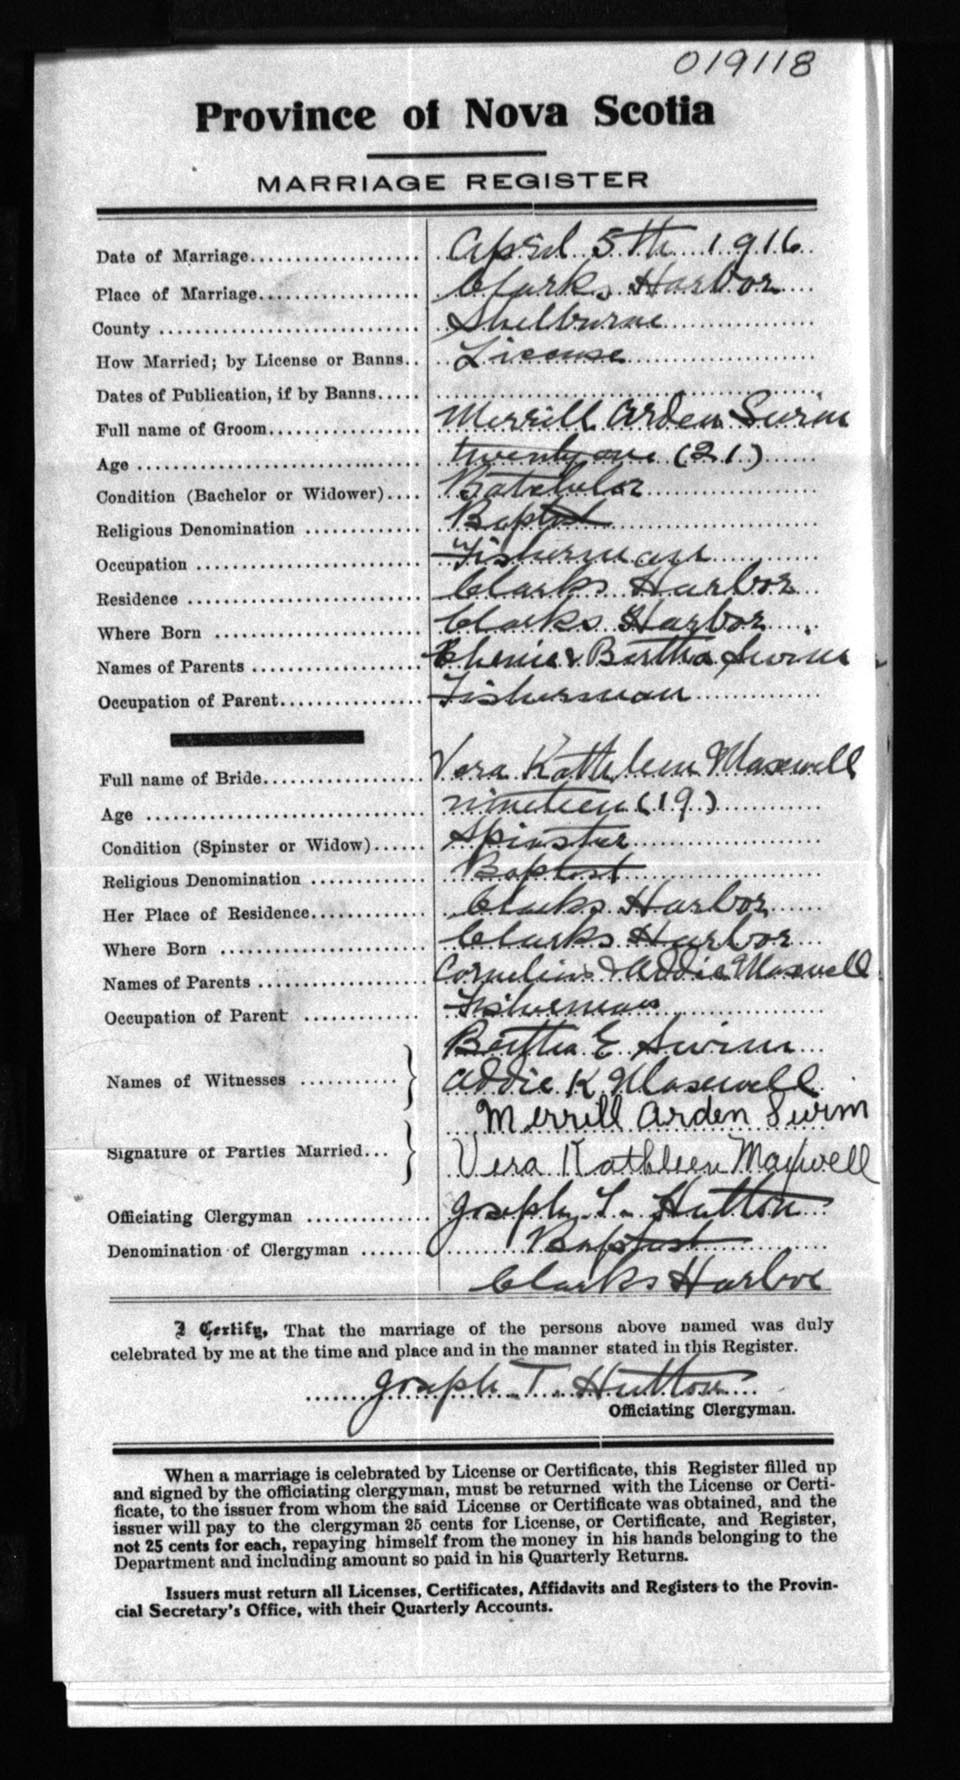 019118
Province of Nova Scotia
MARRIAGE REGISTER
Date of Marriage April 5th 1916
Place of Marriage Clarks Harbor
County Shelburne
How Married; by License or Banns License
Dates of Publication, if by Banns
Full name of Groom Merrill Arden Swim
Age twenty one (21)
Condition (Bachelor or Widower) Batchelor
Religious Denomination Baptist
Occupation Fisherman
Residence Clarks Harbor
Where Born Clarks Harbor
Names of Parents & Bertha Swim
Occupation of Parent Fisherman
Full name of Bride Vera Kathleen Maxwell
Age nineteen (19)
Condition (Spinster or Widow) Spinster
Religious Denomination Baptist
Her Place of Residence Clarks Harbor
Where Born Clarks Harbor
Names of Parents Cornelius & Addie Maxwell
Occupation of Parent Fisherman
Bertha E Swim
Names of Witnesses
Addie K Maxwell
Merrill Arden Swim
Signature of Parties Married
Vera Kathleen Maxwell
Officiating Clergyman Joseph T. Hutton
Denomination of Clergyman Baptist
Clarks Harbor
I Certify, That the marriage of the persons above named was duly
celebrated by me at the time and place and in the manner stated in this Register.
Joseph T. Hutton
Officiating Clergyman.
When a marriage is celebrated by License or Certificate, this Register filled up
and signed by the officiating clergyman, must be returned with the License or Certi-
ficate, to the issuer from whom the said License or Certificate was obtained, and the
issuer will pay to the clergyman 25 cents for License, or Certificate, and Register,
not 25 cents for each, repaying himself from the money in his hands belonging to the
Department and including amount so paid in his Quarterly Returns.
Issuers must return all Licenses, Certificates, Affidavits and Registers to the Provin-
cial Secretary's Office, with their Quarterly Accounts.